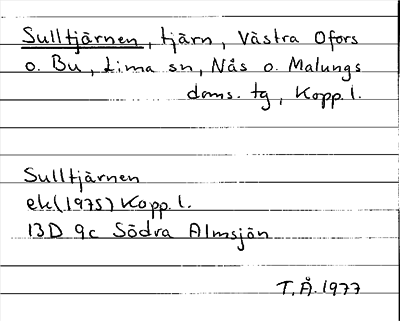 Sulltjärnen, tjärn, Västra Ofors
o. Bu, Lima sn, Nås o. Malungs
doms. tg, Kopp. l.
Sulltjärnen
ek (1975) Kopp. l.
13D 9c Södra Almsjön
T.Å. 1977